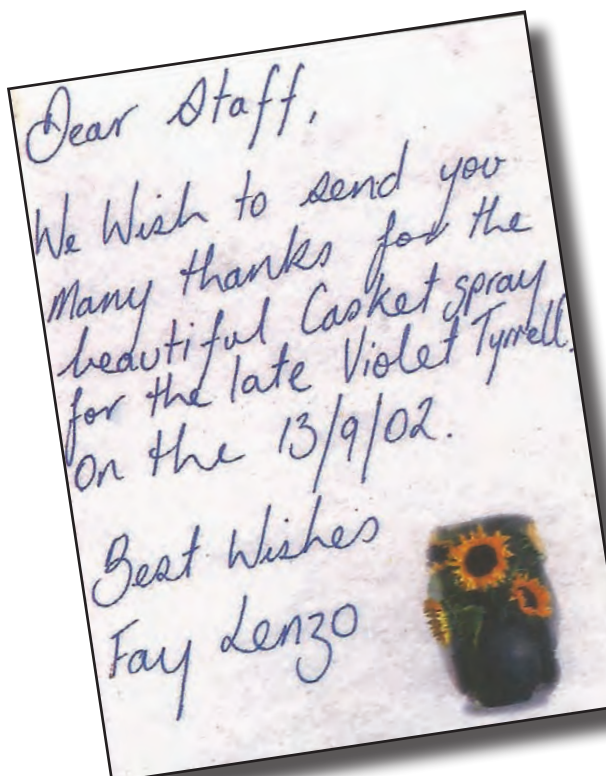 Dear Staff,
We Wish to send you
Many thanks for the
beautiful Casket spray
for the late Violet Tyrrell.
on the 13/9/02.
Best Wishes
Fay Lenzo